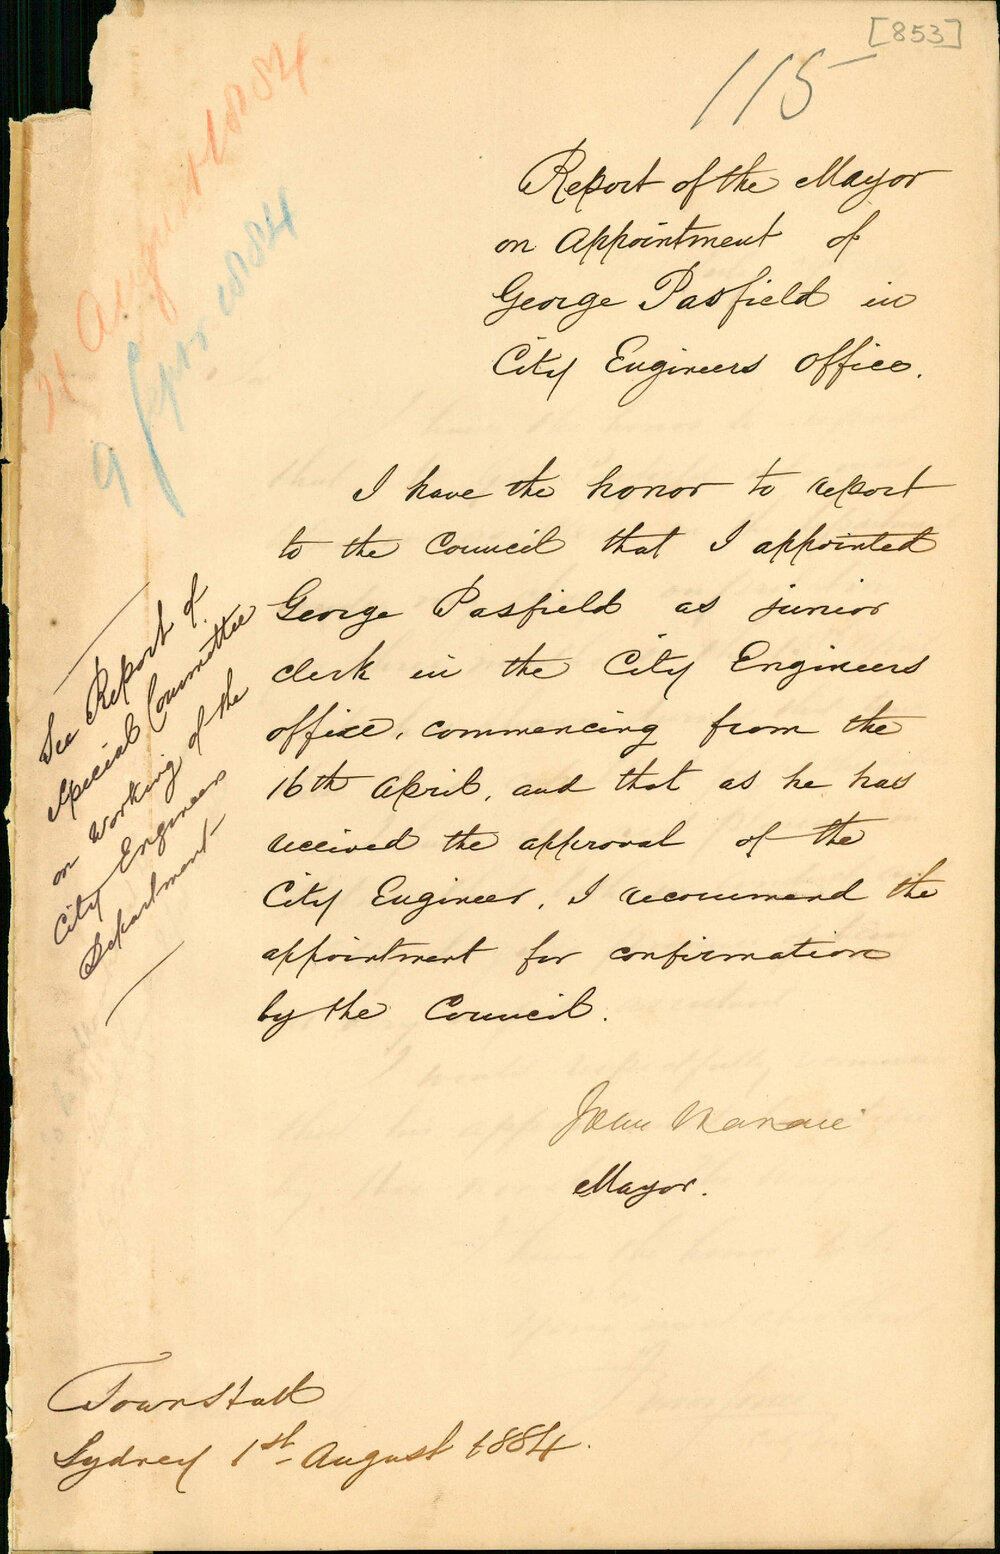 [853]
115
21 August 1884
9 Septr 1884
Report of the Mayor
on Appointment of
George Pasfield in
City Engineers Office.
I have the honor to report
to the Council that I appointed
George Pasfield as junior
clerk in the City Engineers
office, commencing from the
16th April, and that as he has
received the approval of the
City Engineer, I recommend the
appointment for confirmation
by the Council.
See Report of
Special Committee
on Working of the
City Engineers
Department
John
Mayor.
Town Hall
Sydney 1st August 1884.